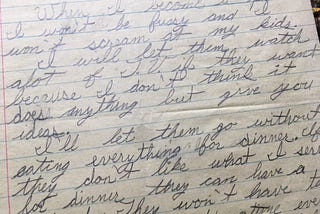 When I become a
I won't be fussy and I
won't scream at my kids.
I will let them watch
alot of T.V. if they want
because I don't think it
does anything but give you
ideas.
I'll let them go without
eating everything for dinner. If
they don't like what I serve
for dinner they can have a
They won't have to